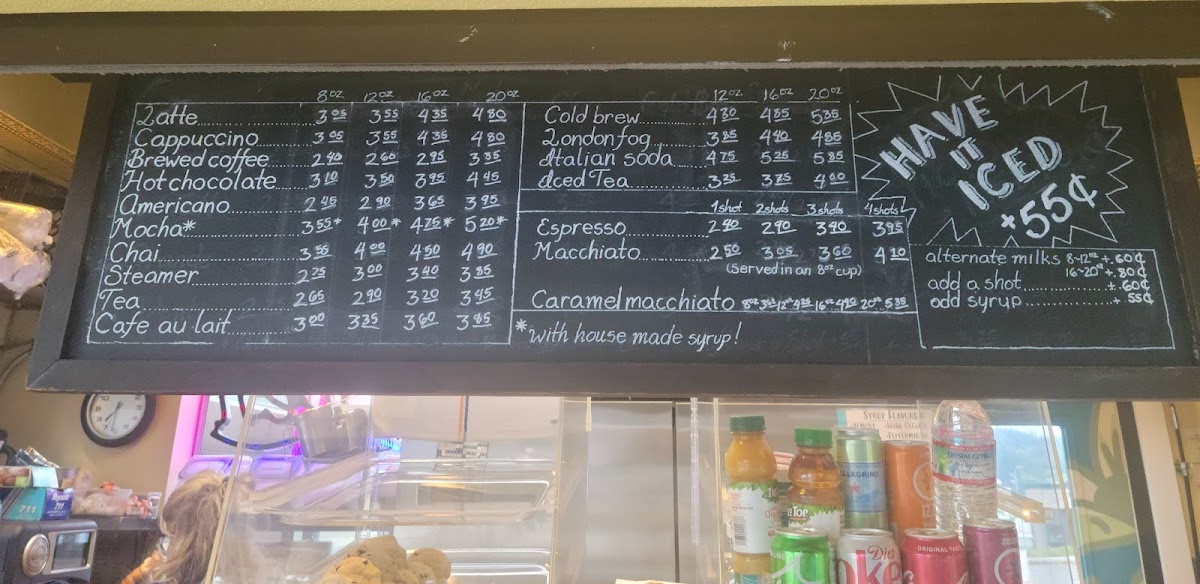 8oz 12oz 16oz 20oz
Latte 3.05 3.55 4.35 4.80
Cappuccino 3.05 3.55 4.35 4.80
Brewed coffee 2.40 2.60 2.95 3.35
Hot chocolate 3.10 3.50 3.95 4.45
Americano 2.45 2.90 3.65 3.95
Mocha* 3.55* 4.00* 4.75* 5.20*
Chai 3.55 4.00 4.50 4.90
Steamer 2.75 3.00 3.40 3.85
Tea 2.65 2.90 3.20 3.45
Cafe au lait 3.00 3.35 3.60 3.85
12oz 16oz 20oz
Cold brew 4.30 4.85 5.35
London fog 3.85 4.40 4.85
Italian soda 4.75 5.25 5.85
Iced Tea 3.25 3.75 4.00
1 shot 2 shots 3 shots 4 shots
Espresso 2.40 2.90 3.40 3.95
Macchiato 2.50 3.05 3.60 4.10
(Served in an 8oz cup)
Caramel macchiato 8oz 12oz 16oz 4.90 20oz 5.35
*with house made syrup!
HAVE
IT
ICED
+55¢
alternate milks 8-12oz +.60¢
16-20oz +.80¢
add a shot +.60¢
add syrup + 55¢
SYRUP FLAVORS
PEPPERMINT
PELLEGRINO
CRYSTAL GEYSER
Diet
Coke
ORIGINAL TASTE
711
711